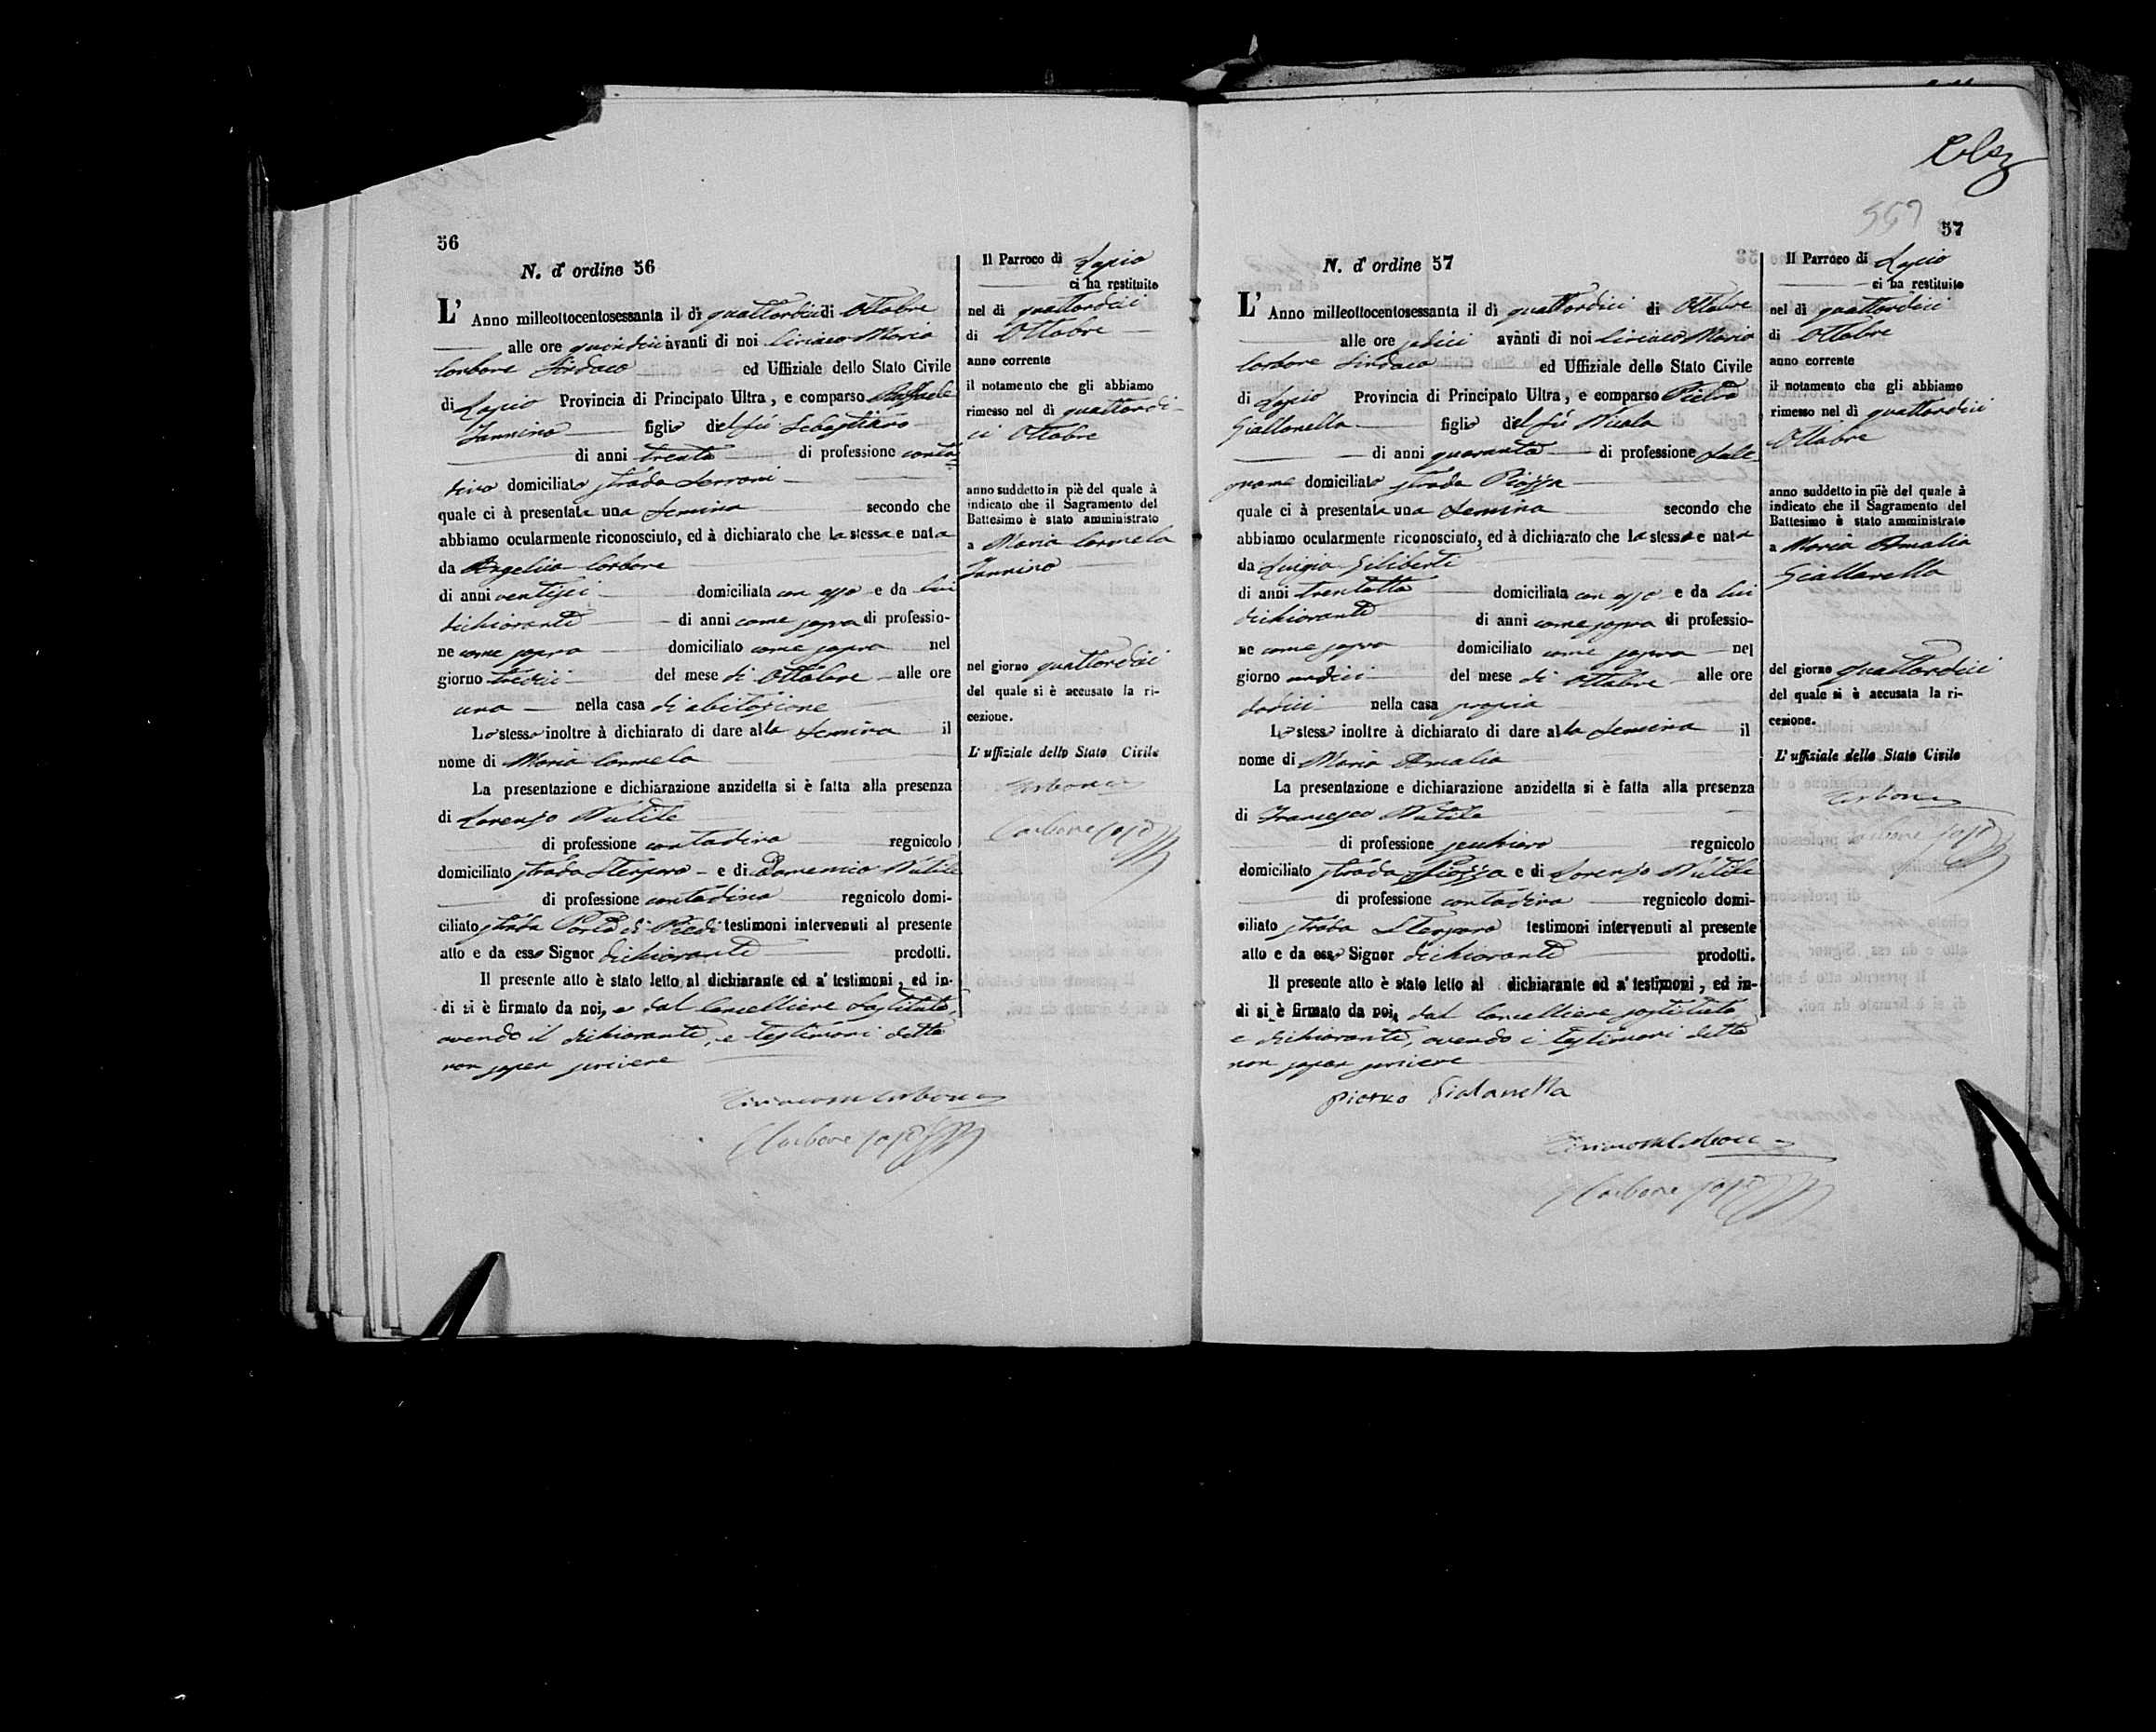 56
N. d' ordine 56
L' Anno milleottocentosessanta il dì quattordici di Ottobre
alle ore quindici avanti di noi Ciriaco Maria
Carbone Sindaco ed Uffiziale dello Stato Civile
di Lapio Provincia di Principato Ultra, e comparso Raffaele
Iannino figlio del fù Sebastiano
di anni trenta di professione conta-
dino domiciliato strada
quale ci à presentata una femina secondo che
abbiamo ocularmente riconosciuto, ed à dichiarato che la stessa e nata
da Angelica Carbone
di anni ventisei domiciliata con esso e da lui
dichiarante di anni come sopra di professio-
ne come sopra domiciliato come sopra nel
giorno tredici del mese di Ottobre alle ore
una nella casa di abitazione
Lo stesso inoltre à dichiarato di dare alla femina il
nome di Maria Carmela
La presentazione e dichiarazione anzidetta si è fatta alla presenza
di Lorenzo Nutile
di professione contadino regnicolo
domiciliato strada Sterparo e di Domenico Nutile
di professione contadino regnicolo domi-
ciliato strada Porta di Piedi testimoni intervenuti al presente
atto e da esso Signor dichiarante prodotti.
Il presente atto è stato letto al dichiarante ed a' testimoni, ed in-
di si è firmato da noi, e dal Cancelliere Sostituto,
avendo il dichiarante, e testimoni detto
non saper scrivere
Carbone
Il Parroco di Lapio
ci ha restituito
nel dì quattordici
di Ottobre
anno corrente
il notamento che gli abbiamo
rimesso nel dì quattordi-
ci Ottobre
anno suddetto in piè del quale à
indicato che il Sagramento del
Battesimo è stato amministrato
a Maria Carmela
Iannino
nel giorno quattordici
del quale si è accusato la ri-
cezione.
L' uffiziale dello Stato Civile
Carbone
Carbone
57
N. d' ordine 57
L' Anno milleottocentosessanta il dì quattordici di Ottobre
alle ore sedici avanti di noi Ciriaco Maria
Carbone Sindaco ed Uffiziale dello Stato Civile
di Lapio Provincia di Principato Ultra, e comparso Pietro
Giallonella figlio del fù Nicola
di anni quaranta di professione fale-
gname domiciliato strada Piazza
quale ci à presentata una femina secondo che
abbiamo ocularmente riconosciuto, ed à dichiarato che la stessa e nata
da Luigia Ciliberti
di anni trentotto domiciliata con esso e da lui
dichiarante di anni come sopra di professio-
ne come sopra domiciliato come sopra nel
giorno undici del mese di Ottobre alle ore
dodici nella casa propria
Lo stesso inoltre à dichiarato di dare alla femina il
nome di Maria Amalia
La presentazione e dichiarazione anzidetta si è fatta alla presenza
di Francesco Nutile
di professione regnicolo
domiciliato strada Piazza e di Lorenzo Nutile
di professione contadino regnicolo domi-
ciliato strada Sterparo testimoni intervenuti al presente
atto e da esso Signor dichiarante prodotti.
Il presente atto è stato letto al dichiarante ed a' testimoni, ed in-
di si è firmato da noi, dal Cancelliere sostituto
e dichiarante, avendo i testimoni detto
non saper scrivere
Pietro Gialanella
Carbone
Il Parroco di Lapio
ci ha restituito
nel dì quattordici
di Ottobre
anno corrente
il notamento che gli abbiamo
rimesso nel dì quattordici
Ottobre
anno suddetto in piè del quale à
indicato che il Sagramento del
Battesimo è stato amministrato
a Maria Amalia
Giallanella
del giorno quattordici
del quale si è accusata la ri-
cezione.
L' uffiziale dello Stato Civile
Carbone
Carbone